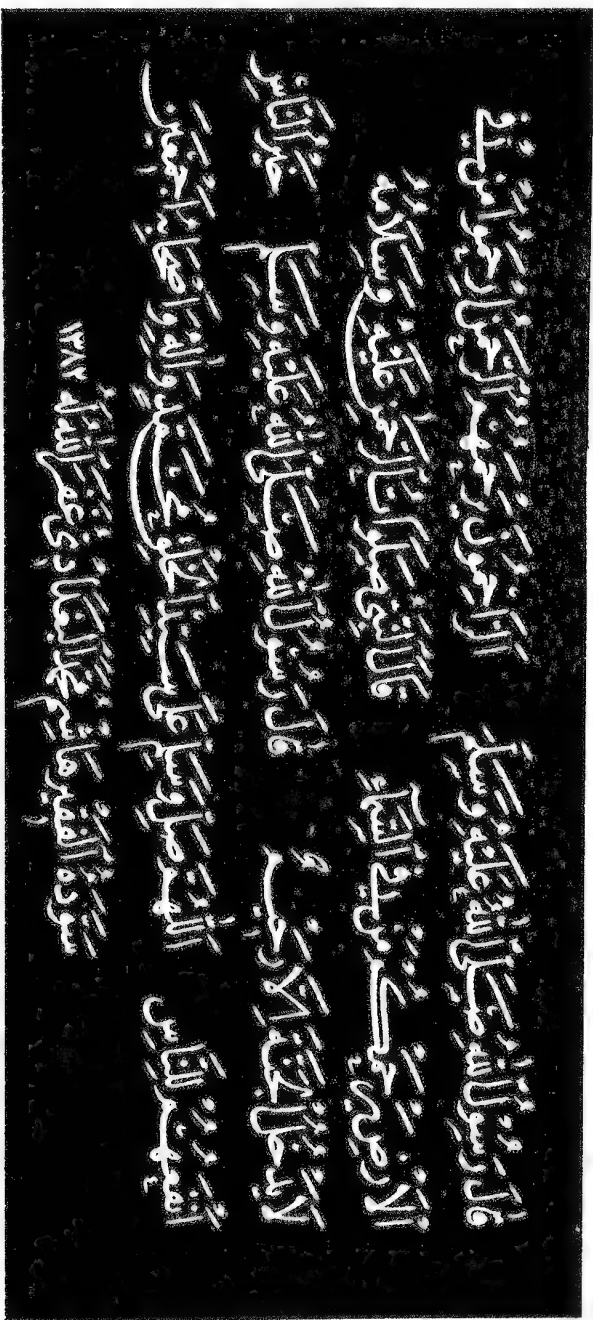 قَالَ رَسُولُ اللهِ صَلَّى اللهُ عَلَيْهِ وَسَلَّمَ الرَّاحِمُونَ يَرْحَمُهُمُ الرَّحْمٰنُ ارْحَمُوا مَنْ فِي
الْأَرْضِ يَرْحَمْكُمْ مَنْ فِي السَّمَاءِ قَالَ النَّبِيُّ صَلَوَاتُ الرَّحْمٰنِ عَلَيْهِ وَسَلَامُهُ
لَا يَدْخُلُ الْجَنَّةَ إِلَّا رَحِيمٌ قَالَ رَسُولُ اللهِ صَلَّى اللهُ عَلَيْهِ وَسَلَّمَ خَيْرُ النَّاسِ
أَنْفَعُهُمْ لِلنَّاسِ اللّٰهُمَّ صَلِّ وَسَلِّمْ عَلَى مُحَمَّدٍ وَآلِهِ وَأَصْحَابِهِ أَجْمَعِينَ
سَوَّدَهُ الْفَقِيرُ هَاشِم مُحَمَّد الْبَغْدَادِي غَفَرَ اللهُ لَهُ ١٣٨٢